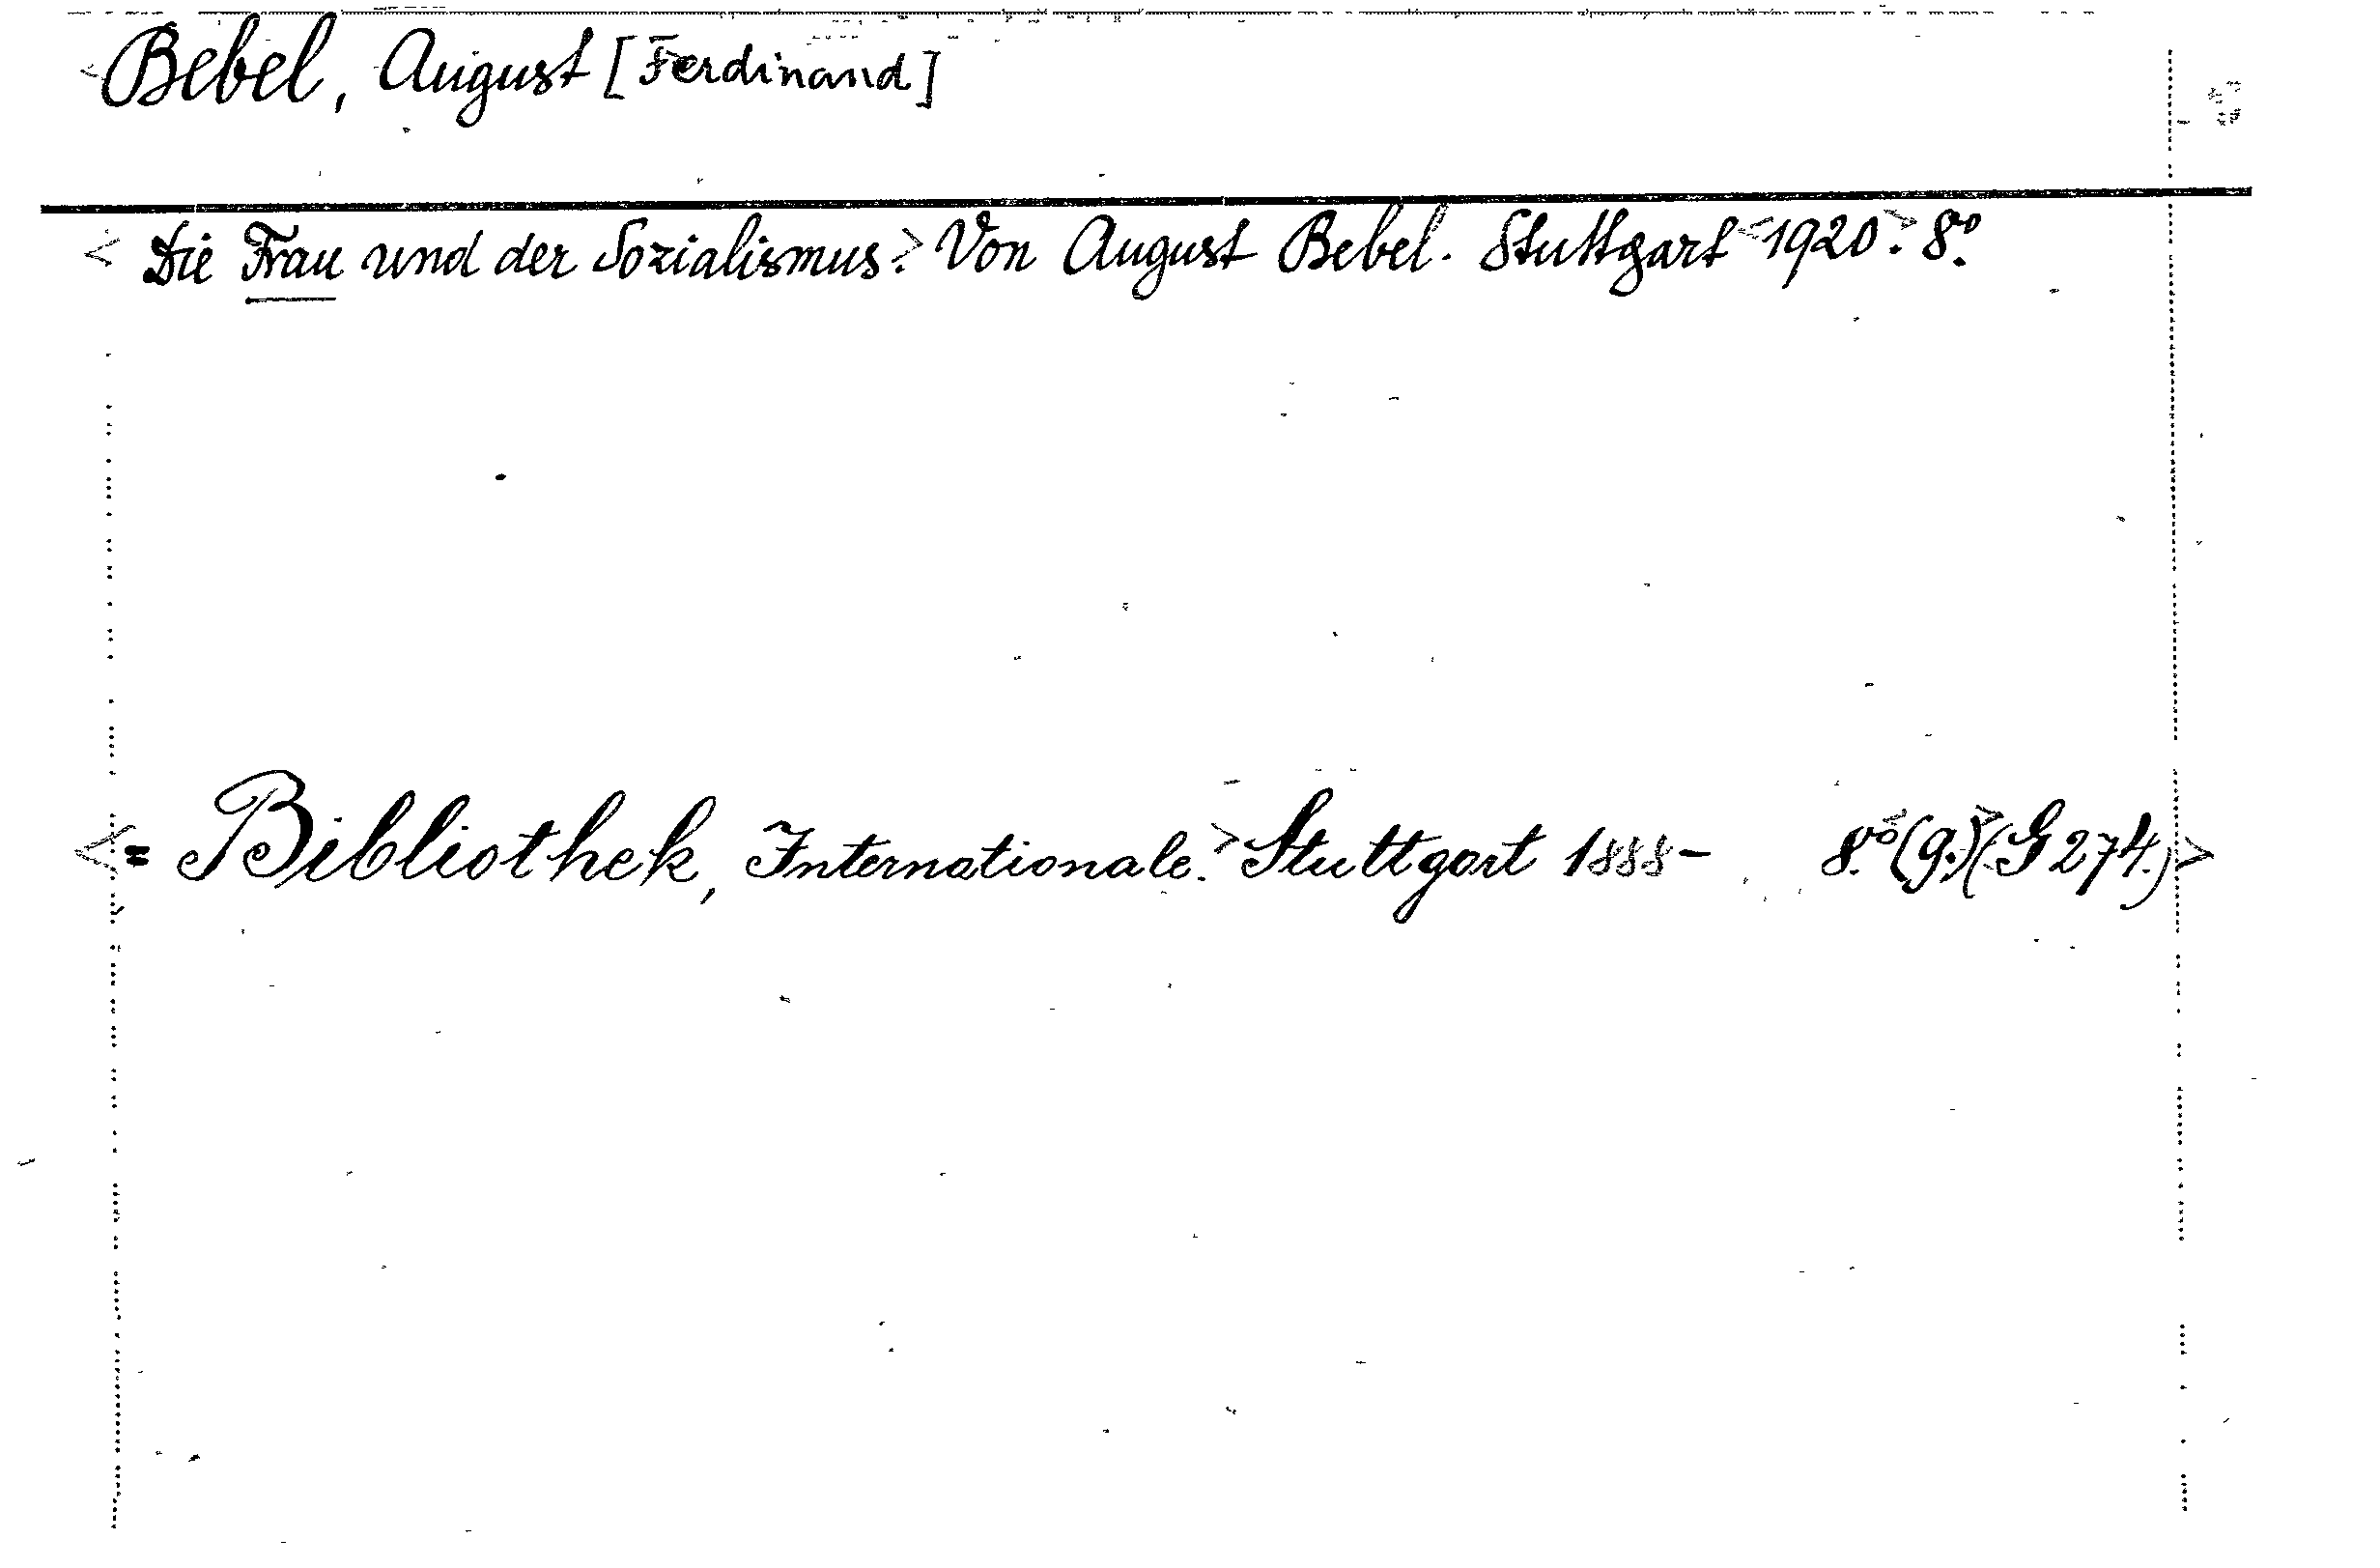 <Bebel, August [Ferdinand]
< Die Frau und der Sozialismus.> Von August Bebel. Stuttgart <1920>. 8.º
<= Bibliothek, Internationale.> Stuttgart 1888- 8.º <(9.)> (G 274.)>